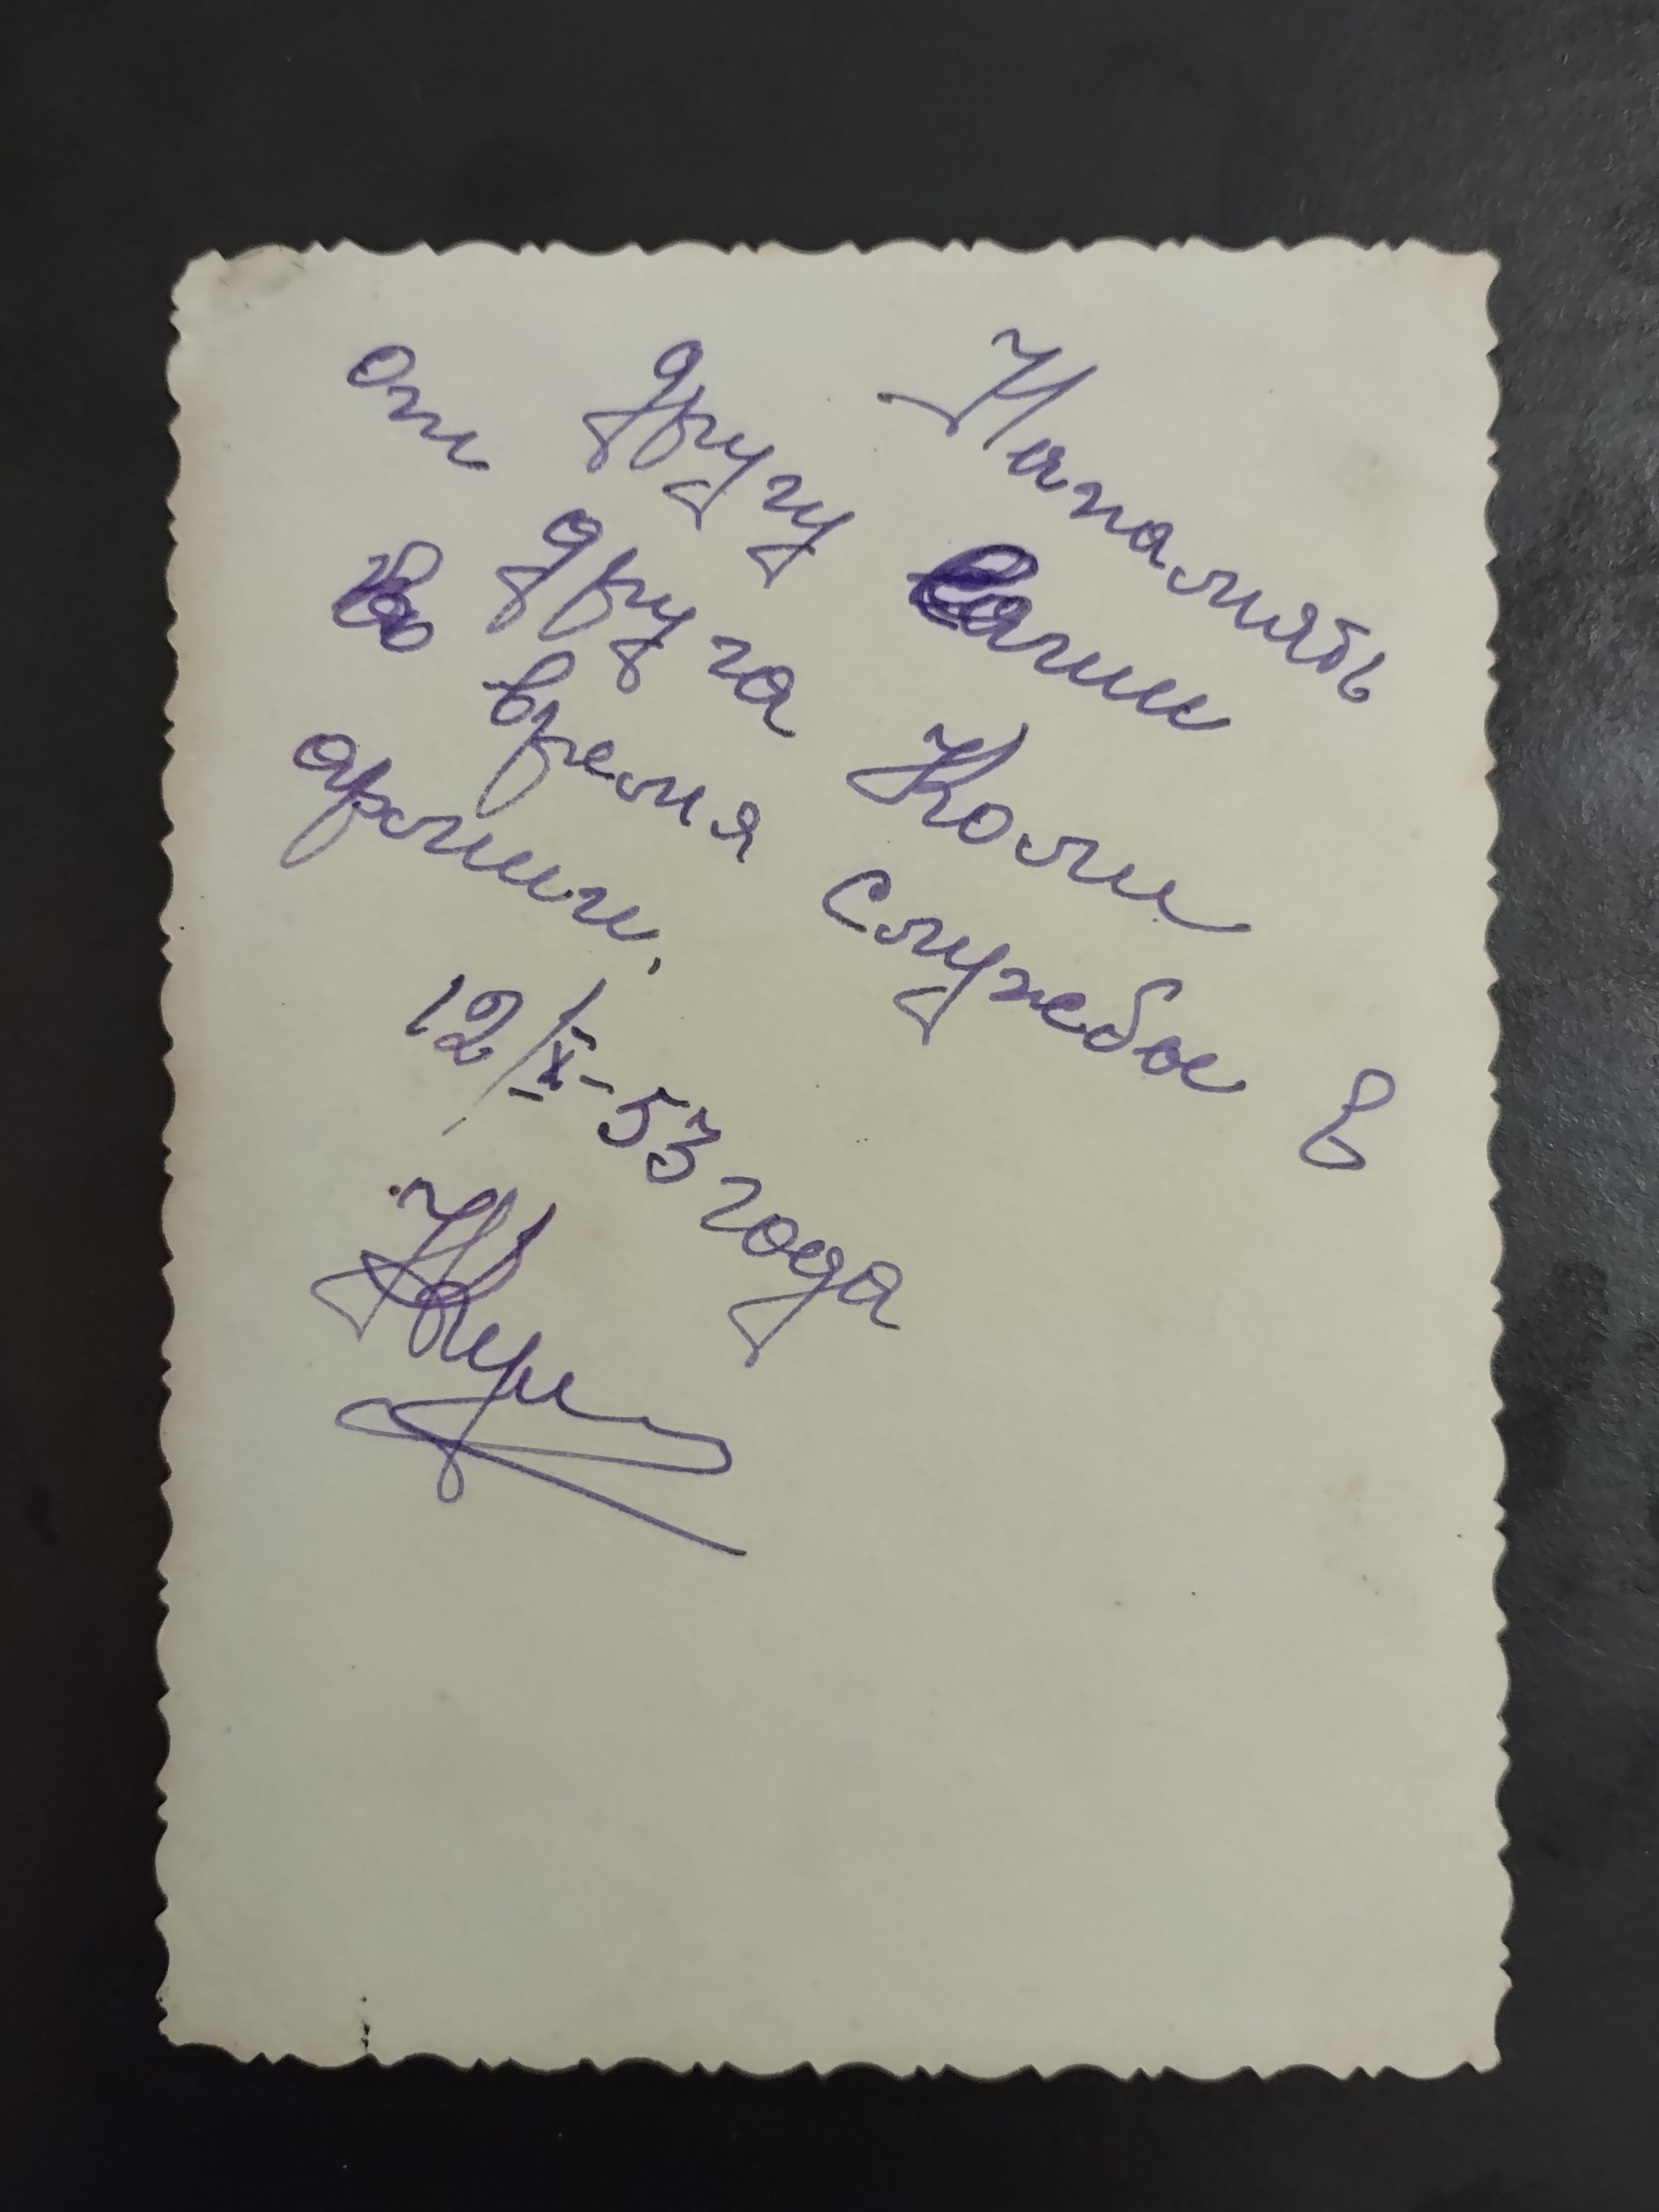 На память
другу Саши
от друга Коли
Во время службы в
армии.
12/X-53 года